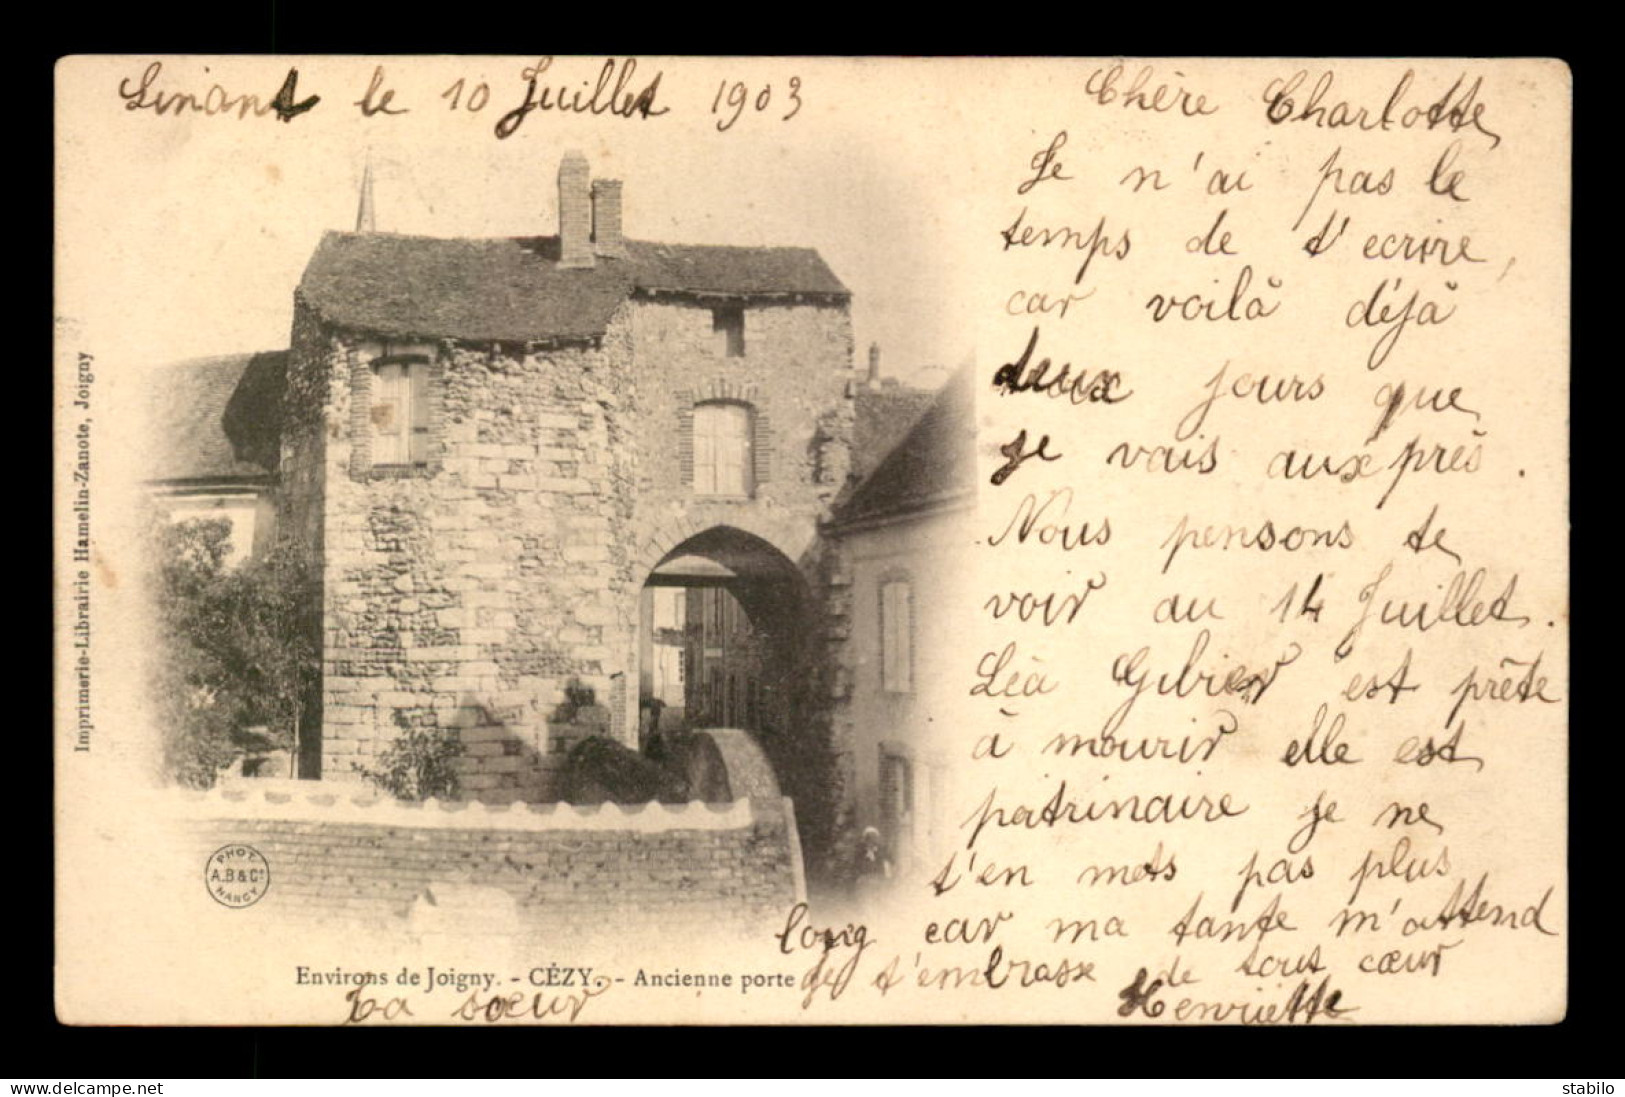 Linant le 10 Juillet 1903
Chère Charlotte
Je n'ai pas le
temps de t'ecrire,
car voilà déjà
deux jours que
je vais aux près.
Nous pensons te
voir au 14 Juillet.
Léa Gibier est prête
à mourir elle est
patrinaire je ne
t'en mets pas plus
long car ma tante m'attend
je t'embrasse de tout cœur
Ta sœur Henriette
Environs de Joigny. - CÉZY. - Ancienne porte
Imprimerie-Librairie Hamelin-Zanote, Joigny
PHOT.
A.B & Cie
NANCY
www.delcampe.net
stabilo